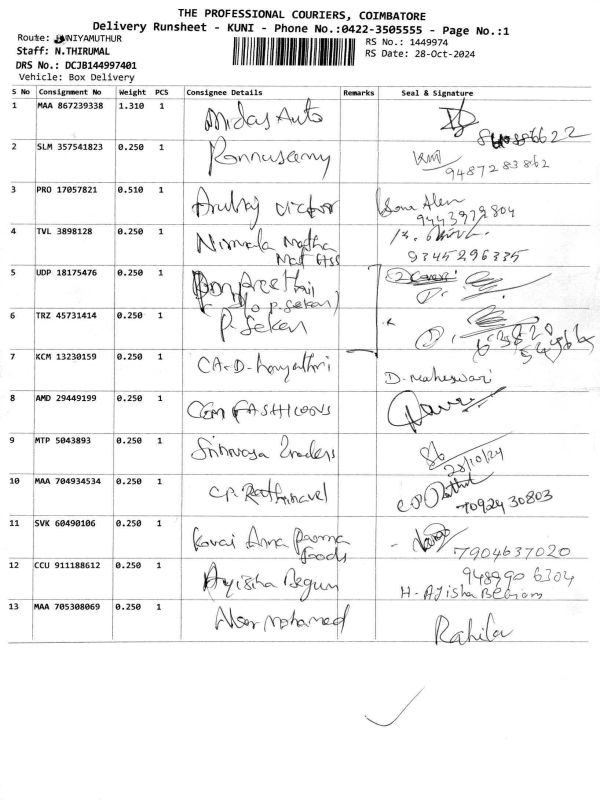 THE PROFESSIONAL COURIERS, COIMBATORE
Delivery Runsheet - KUNI - Phone No.:0422-3505555 - Page No.:1
Route: KUNIYAMUTHUR
RS No.: 1449974
Staff: N.THIRUMAL
RS Date: 28-Oct-2024
DRS No.: DCJB144997401
Vehicle: Box Delivery
S No Consignment No Weight PCS Consignee Details Remarks Seal & Signature
1 MAA 867239338 1.310 1 Midas Auto
2 SLM 357541823 0.250 1 Ponnusamy
9487283862
3 PRO 17057821 0.510 1 Arulraj Victor
9443979804
4 TVL 3898128 0.250 1 Nirmala Matha
9345296335
5 UDP 18175476 0.250 1 Ponpreethi
P. Sekar)
6 TRZ 45731414 0.250 1 P. Sekar
7 KCM 13230159 0.250 1 CA-D-
D. Maheswari
8 AMD 29449199 0.250 1 CGM FASHIOONS
9 MTP 5043893 0.250 1 Srinivasa Traders
28/10/24
10 MAA 704934534 0.250 1 C.P. Rathinavel
7092430803
11 SVK 60490106 0.250 1 Kovai Anna Poorna
Foods
7904637020
12 CCU 911188612 0.250 1 Ayisha Begum
9489906304
H. AJisha BeGum
13 MAA 705308069 0.250 1 Noor Mohamed Rahila